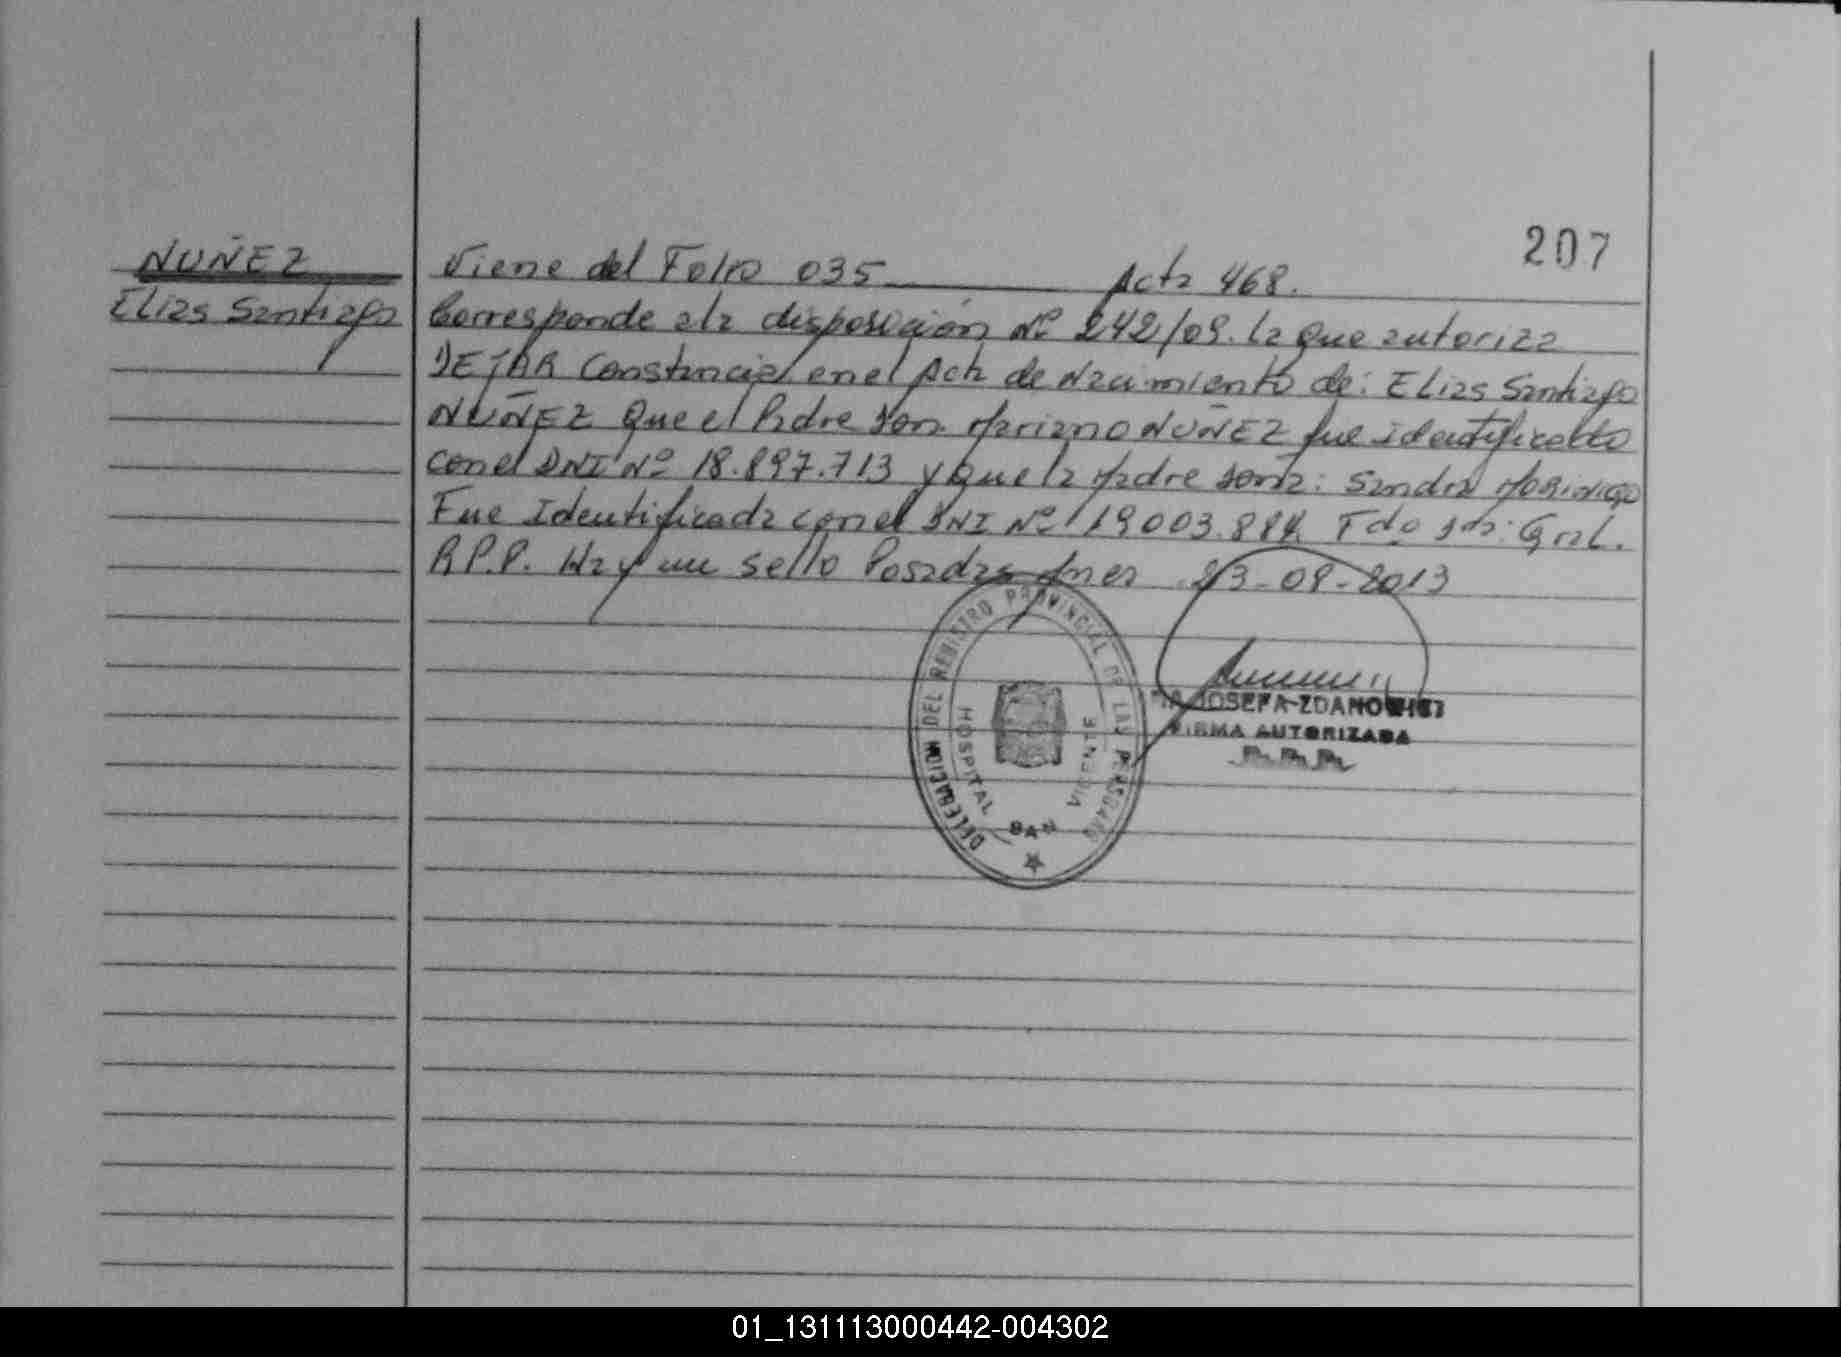 207
NUÑEZ
Elias Santiago
Viene del Folio 035 Acta 468.
Corresponde a la disposición Nº 242/09. la que autoriza
DEJAR Constancia en el Acta de Nacimiento de: Elias Santiago
NUÑEZ Que el Padre don Mariano NUÑEZ fue identificado
con el DNI Nº 18.897.713 y que la Madre doña: Sandra
Fue Identificada con el DNI Nº 19003.884 Fdo Gral.
R.P.P. Hay un sello Posadas Mnes 23-09-2013
DELEGACION DEL REGISTRO PROVINCIAL DE LAS PERSONAS
HOSPITAL SAN VICENTE
JOSEFA ZDANOWICZ
FIRMA AUTORIZADA
01_131113000442-004302